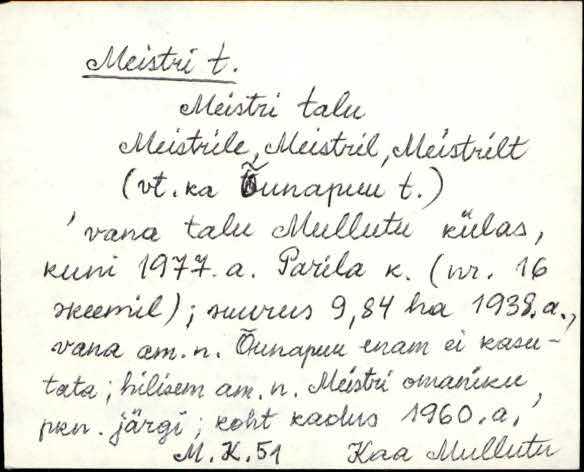 Meistri t.
Meistri talu
Meistrile, Meistril, Meistrilt
(vt. ka Õunapuu t.)
'vana talu Mullutu külas,
kuni 1977. a. Parila k. (nr. 16
skeemil); suurus 9,84 ha 1938. a.,
vana am. n. Õunapuu enam ei kasu-
tata; hilisem am. n. Meistri omaniku
pkn. järgi; koht kadus 1960. a.'
M. K. 51 Kaa Mullutu